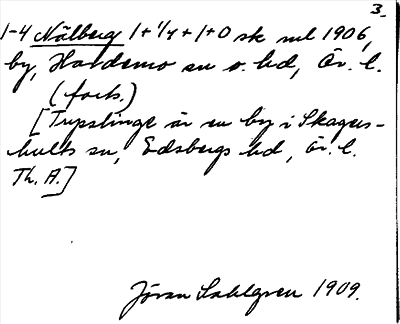 3.
1-4 Nälberg 1+1/4+1+0 sk ml 1906,
by, Hardemo sn o. hd, Ör. l.
(forts.)
[Trystinge är en by i Skagers-
hults sn, Edsbergs hd, Ör. l.
Th. A.]
Jöran Sahlgren 1909.